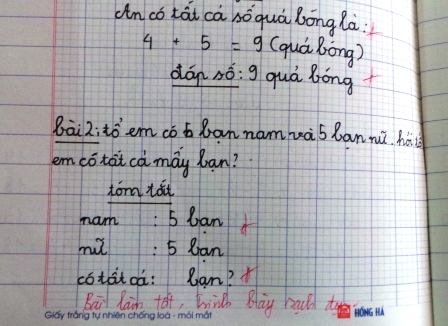 An có tất cả số quả bóng là:
4 + 5 = 9 (quả bóng)
đáp số: 9 quả bóng
bài 2: tổ em có 5 bạn nam và 5 bạn nữ. hỏi tổ
em có tất cả mấy bạn?
tóm tắt
nam : 5 bạn
nữ : 5 bạn
có tất cả: bạn?
Bài làm tốt, trình bày sạch đẹp.
Giấy trắng tự nhiên chống loá - mỏi mắt HỒNG HÀ